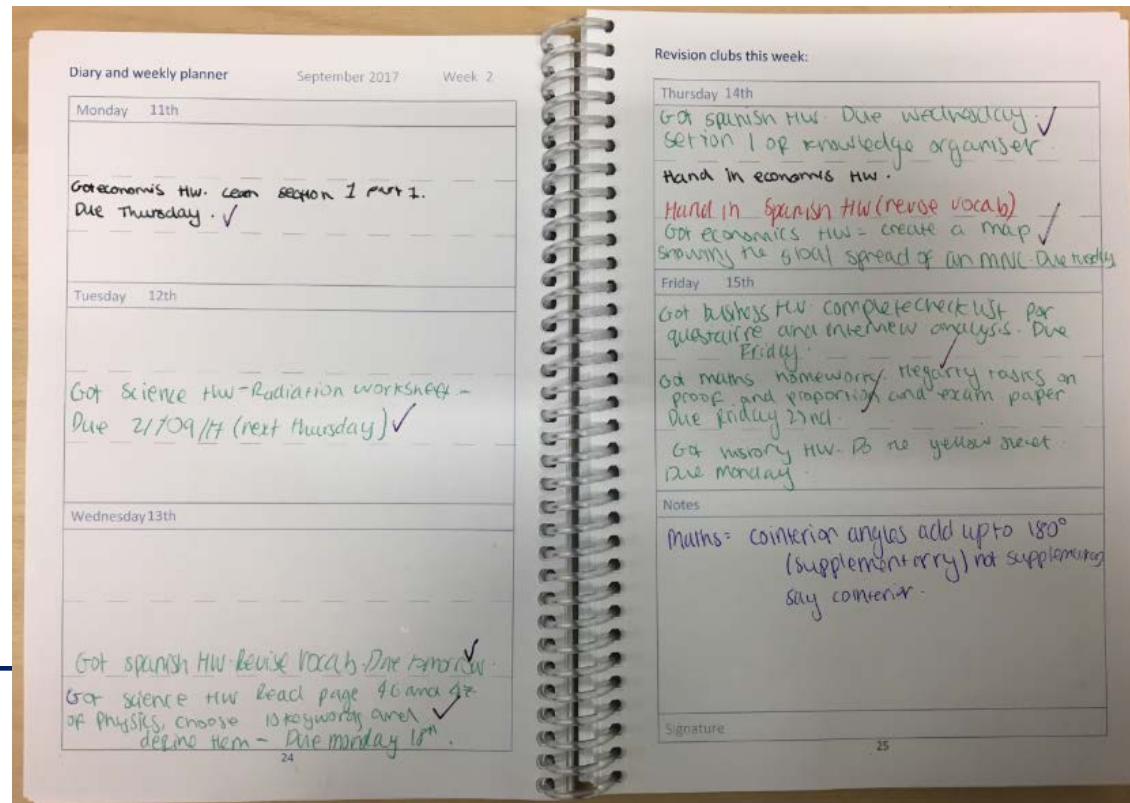 Diary and weekly planner September 2017 Week 2
Monday 11th
Got economis HW. Learn section 1 part 1.
Due Thursday. ✓
Tuesday 12th
Got Science HW-Radiation worksheet -
Due 21/09/17 (next thursday) ✓
Wednesday 13th
Got spanish HW. Revise vocab. Due tomorrow. ✓
Got science HW Read page 46 and 47
of Physics, choose 10 keywords and ✓
define them - Due monday 18th.
24
Revision clubs this week:
Thursday 14th
Got spanish HW. Due wednesday. ✓
setion 1 of knowledge organiser.
Hand in economis HW.
Hand in Spanish HW (revise vocab)
Got economics HW = create a map ✓
showing the global spread of an MNC. Due
Friday 15th
Got business HW. complete checklist for
and interview analysis. Due
Friday.
Got maths homework. Hegarty tasks on
proof and proportion and exam paper
Due Friday 22nd.
Got history HW. Do the yellow sheet.
Due monday.
Notes
Maths = cointerior angles add up to 180°
(supplementarry) not
say cointerior.
Signature
25